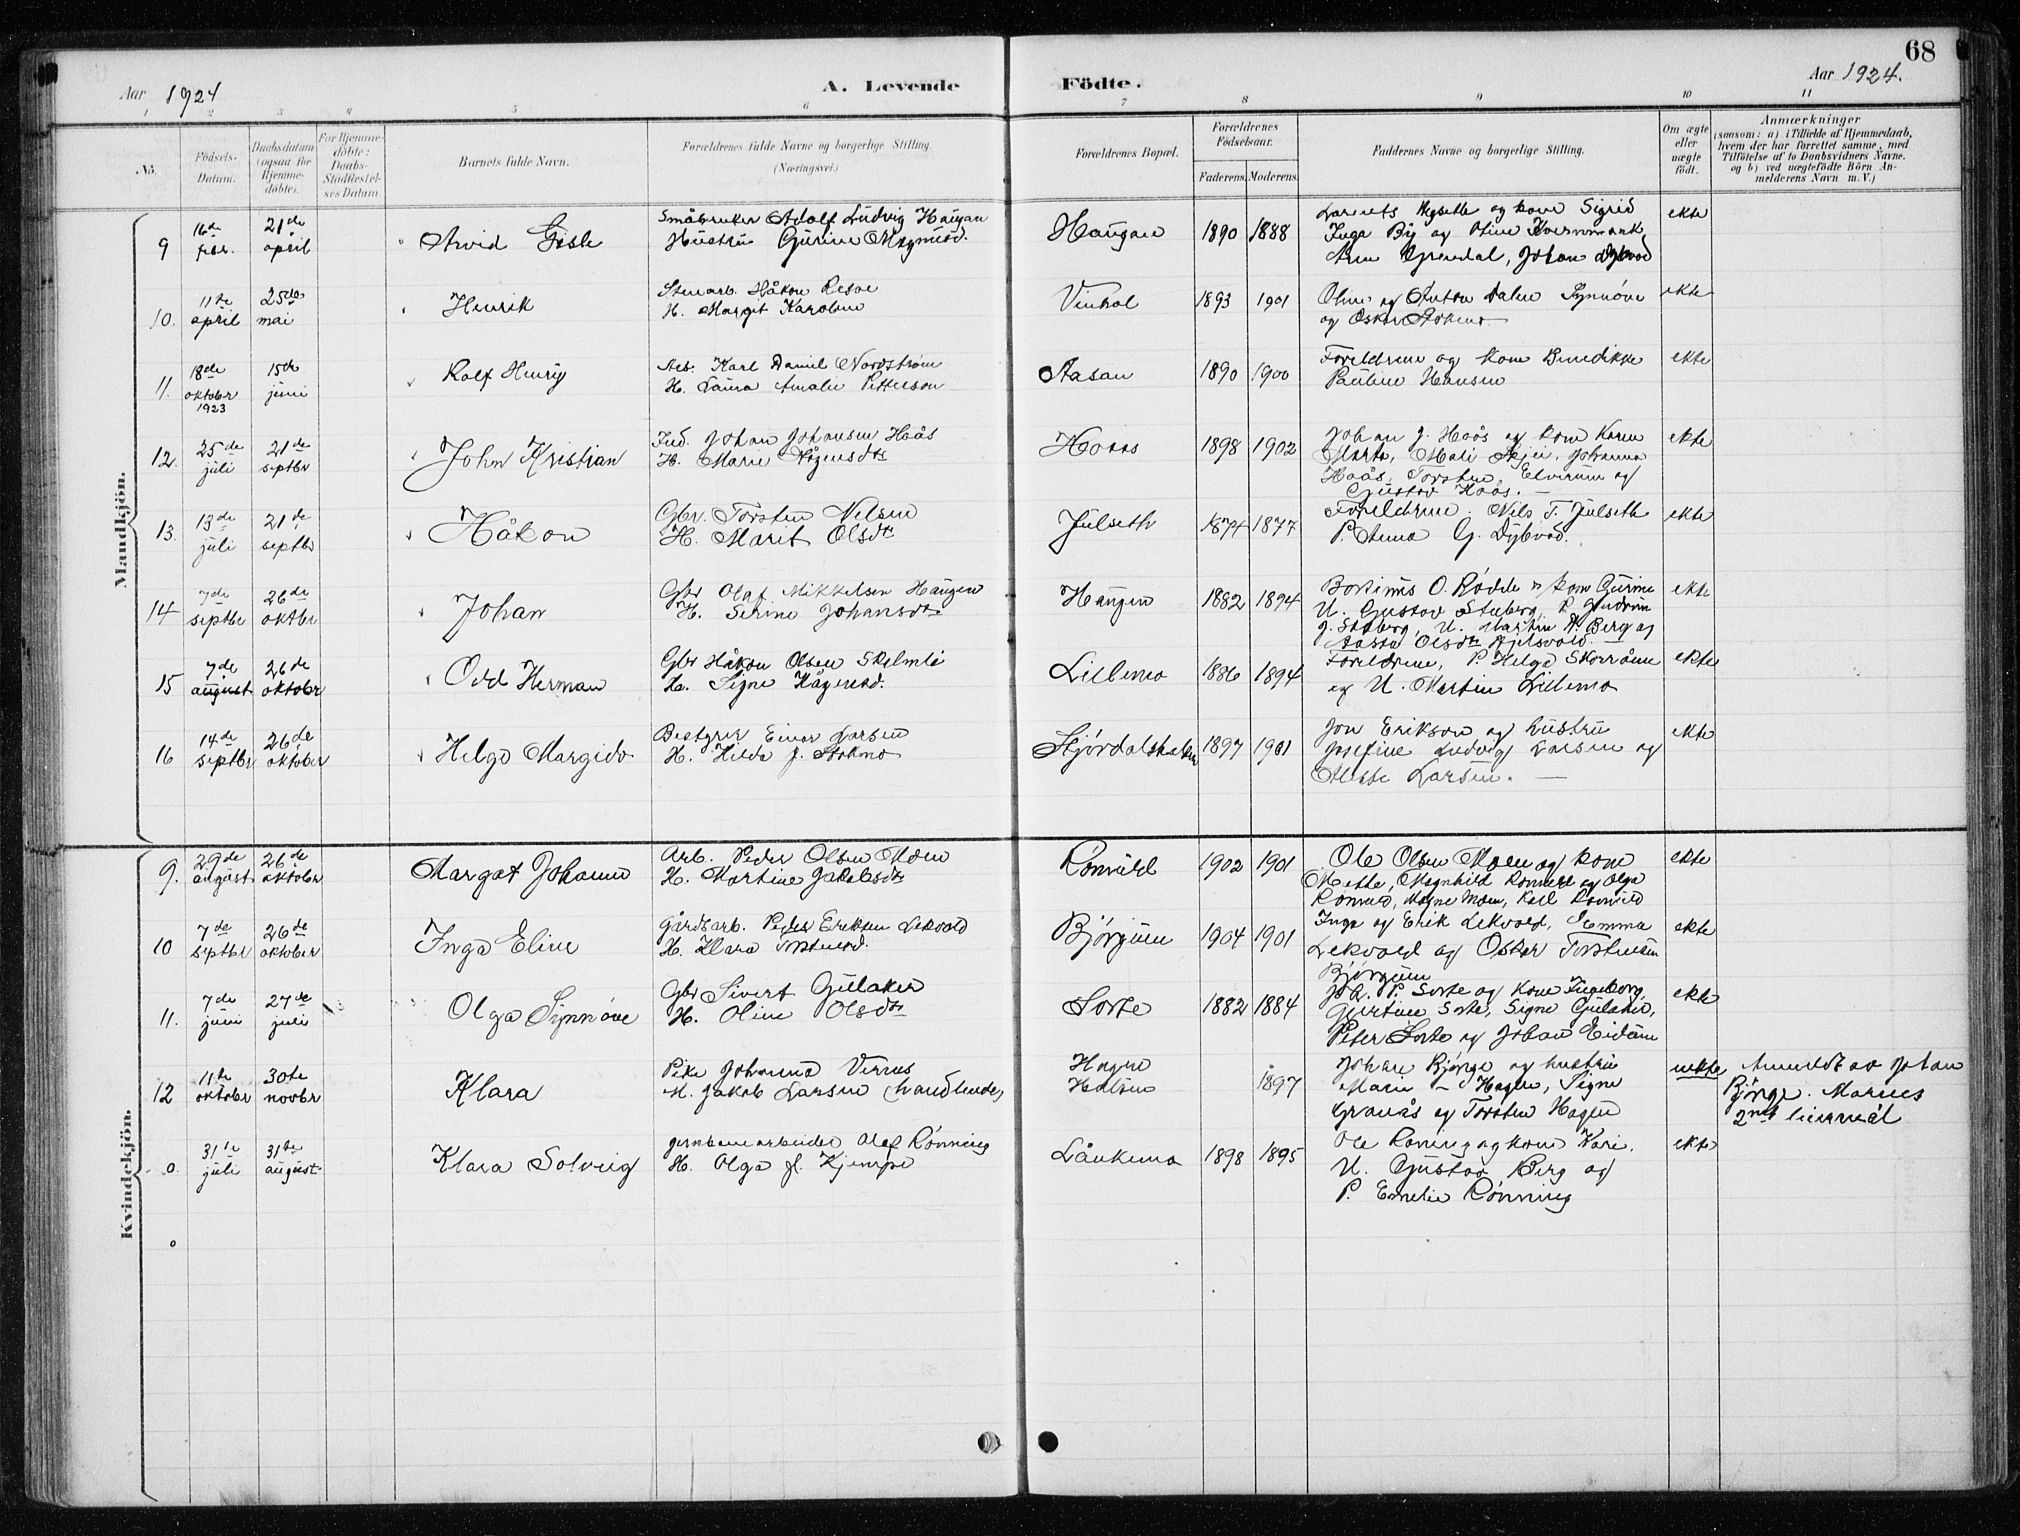 68
Aar 1924
A. Levende Födte.
Aar 1924.
1 2 3 4 5 6 7 8 9 10 11
No.
Födsels-Datum.
Daabsdatum (ogsaa for Hjemme-döbte).
For Hjemme-döbte: Daabs-Stadfæstel-ses Datum
Barnets fulde Navn.
Forældrenes fulde Navne og borgerlige Stilling
(Næringsvei.)
Forældrenes Bopæl.
Forældrenes Födselsaar.
Faderens. Moderens.
Faddernes Navne og borgerlige Stilling.
Om ægte eller uægte födt.
Anmærkninger
(saasom: a) i Tilfælde af Hjemmedaab,
hvem der har forrettet samme, med
Tilföielse af to Daabsvidners Navne,
og b) ved uægtefödte Börn An-
melderens Navn m. V.)
Mandkjön.
9 16de febr. 21de april Arvid Gisle
Småbruker Adolf Ludvig Haugan
Hustru Gurine Magnusd.
Haugan 1890 1888
og kone Sigrid
Inga By og Stine Kvernmark
Grendal, Johan Dybvad
ekte
10. 11te april 25de mai Henrik
Stenarb. Håkon Resve
H. Marget Karoline
Vinkol 1893 1901
Oline og Anton Dalen Synnöve
og Oskar
ekte
11. 18de oktober 1923 15de juni Rolf Henry
Arb. Karl Daniel Nordström
H. Laura Amalie Petterson
Aasan 1890 1900
Foreldrene og kone Benedikke
Pauline Hansen
ekte
12. 25de juli 21de septbr John Kristian
Ind. Johan Johansen Haås
H. Marie Hågensdtr
Hoaas 1898 1902
Johan J. Haås og kone Karen
Marta, Mali Skjei, Johanna
Haås, Torsten Elvrum og
Gustav Haås. —
ekte
13. 13de juli 21de septbr Håkon
Gbr. Torsten Nilsen
H. Marit Olsdtr
Julseth 1874 1877
Foreldrene, Nils T. Julseth
P. Anna G. Dybvad.
ekte
14 7de septbr 26de oktbr Johan
Gbr Olaf Mikkelsen Haugen
H. Serine Johansdtr
Haugen 1882 1894
O. Rødde kone Gurine
U. Gustav Stoberg, P. Gudrun
J. Stoberg, U. Martin A. Berg og
Aasta Olsdtr
ekte
15 7de august 26de oktober Odd Herman
Gbr Håkon Olsen Skelmo
H. Signe Hågensd.
Lillemo 1886 1894
Foreldrene, P. Helga
og U. Martin Lillemo
ekte
16 14de septbr 26de oktober Helge Margido
Einar Larsen
H. Hilda J. Stokmo
1897 1901
Jon Erikson og hustru
Josefine Ludvig Larsen og
Larsen. —
ekte
Kvindekjön.
9. 29de august 26de oktober Margot Johanne
Arb. Peder Olsen Moen
H. Martine Jakobsdtr
Rønvild 1902 1901
Ole Olsen Moen og kone
Mette, Magnhild Rønvild og Olga
Rønvild, Magne Moen, Karl Rønvild
ekte
10 7de septbr 26de oktober Inga Eline
Gårdsarb. Peder Eriksen Lekvold
H. Klara Torstensd.
Bjørgum 1904 1901
Inga og Erik Lekvold, Semma
Lekvold og Oskar Torstensen
Bjørgum
ekte
11. 7de juni 27de juli Olga Synnöve
Gbr Sivert Gulaker
H. Oline Olsdtr
Sorte 1882 1884
Joh. P. Sorte og kone Ingeborg,
Gurtine Sorte, Signe Gulaker,
Peter Sorte og Johan Eidum
ekte
12 11te oktober 30te novbr Klara
Pike Johanna Vernes
M. Jakob Larsen (handlende)
Hagen
1897
Johan Bjørge og hustru
Marie — Hagen, Signe
Granås og Torsten Hagen
uekte
Anmeldt av Johan
Bjørge. Morens
2net leiermål
o. 31te juli 31te august Klara Solveig
jernbanearbeider Olaf Rønning
H. Olga J. Kjempe
Låukemo 1898 1895
Ole Roning og kone Kari.
U. Gustav Berg og
P. Emelie Rønning
ekte
o